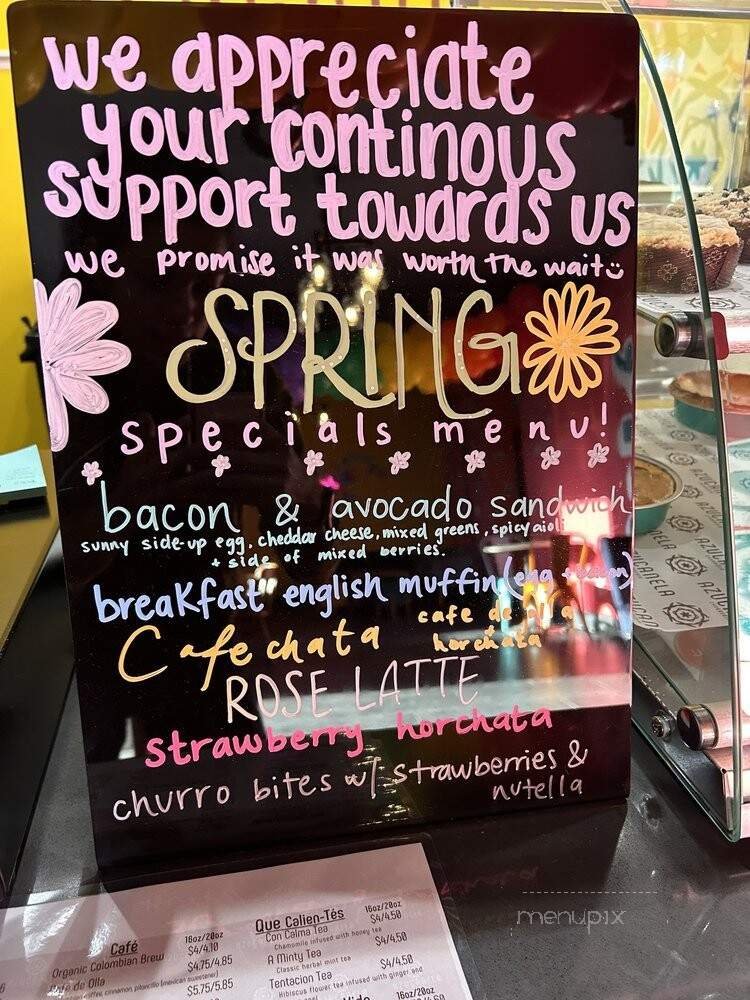 we appreciate
your continous
support towards us
we promise it was worth the wait
SPRING
specials menu!
bacon & avocado sandwich
sunny side-up egg, cheddar cheese, mixed greens, spicy aioli
+ side of mixed berries.
breakfast english muffin (egg + bacon)
Cafechata
cafe de olla
+
horchata
ROSE LATTE
strawberry horchata
churro bites w/ strawberries &
nutella
Café
16oz/20oz
Organic Colombian Brew
$4/4.10
Café de Olla
$4.75/4.85
coffee, cinnamon, piloncillo (mexican sweetener)
$5.75/5.85
Que Calien-Tés
16oz/20oz
Con Calma Tea
$4/4.50
Chamomile infused with honey tea
A Minty Tea
$4/4.50
Classic herbal mint tea
Tentacion Tea
$4/4.50
Hibiscus flower tea infused with ginger and
16oz/20oz
menupix